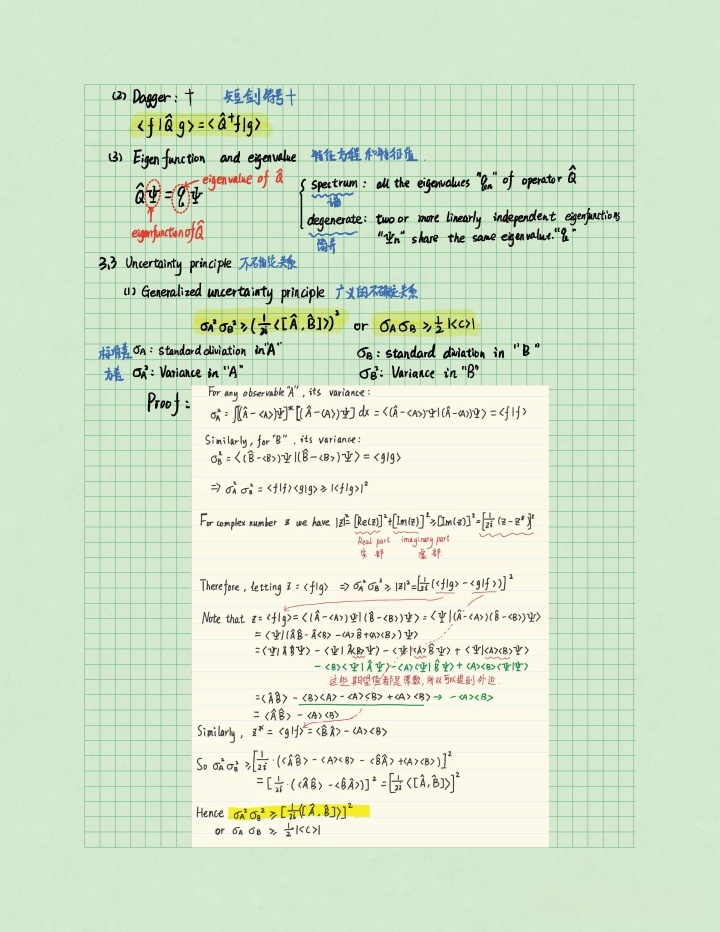 (2) Dagger: † 短剑符号†
⟨f|Q̂g⟩=⟨Q̂†f|g⟩
(3) Eigenfunction and eigenvalue 特征方程和特征值.
Q̂Ψ=qΨ
eigenvalue of Q̂
eigenfunction of Q̂
spectrum: all the eigenvalues "qₙ" of operator Q̂
谱
degenerate: two or more linearly independent eigenfunctions
"Ψn" share the same eigenvalue."q"
简并
3.3 Uncertainty principle 不确定关系
(1) Generalized uncertainty principle 广义的不确定关系
σA²σB²≥(1/2i⟨[Â,B̂]⟩)² or σAσB≥1/2|<C>|
标准差 σA: standard diviation in"A" σB: standard diviation in "B"
方差 σA²: Variance in "A" σB²: Variance in "B"
Proof:
For any observable"A", its variance:
σA²=∫[(Â-<A>)Ψ]*[(Â-<A>)Ψ]dx=<(Â-<A>)Ψ|(Â-<A>)Ψ>=<f|f>
Similarly, for"B", its variance:
σB²=<(B̂-<B>)Ψ|(B̂-<B>)Ψ>=<g|g>
⇒σA²σB²=<f|f><g|g>≥|<f|g>|²
For complex number z we have |z|²=[Re(z)]²+[Im(z)]²≥[Im(z)]²=[1/2i(z-z*)]²
Real part imaginary part
实部 虚部
Therefore, letting z=<f|g> ⇒σA²σB²≥|z|²=[1/2i(<f|g>-<g|f>)]²
Note that z=<f|g>=<(Â-<A>)Ψ|(B̂-<B>)Ψ>=<Ψ|(Â-<A>)(B̂-<B>)Ψ>
=<Ψ|(ÂB̂-Â<B>-<A>B̂+<A><B>)Ψ>
=<Ψ|ÂB̂Ψ>-<Ψ|Â<B>Ψ>-<Ψ|<A>B̂Ψ>+<Ψ|<A><B>Ψ>
-<B><Ψ|ÂΨ>-<A><Ψ|B̂Ψ>+<A><B><Ψ|Ψ>
这些期望值都是常数,所以可以提到外边.
=<ÂB̂>-<B><A>-<A><B>+<A><B>→-<A><B>
=<ÂB̂>-<A><B>
Similarly, z*=<g|f>=<B̂Â>-<A><B>
So σA²σB²≥[1/2i·(<ÂB̂>-<A><B>-<B̂Â>+<A><B>)]²
=[1/2i·(<ÂB̂>-<B̂Â>)]²=[1/2i<[Â,B̂]>]²
Hence σA²σB²≥[1/2i<[Â,B̂]>]²
or σAσB≥1/2|<C>|